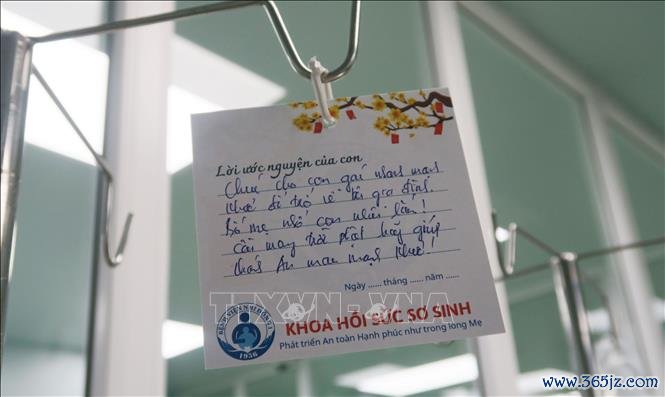 Lời ước nguyện của con
Chúc cho con gái nhanh mạnh
khoẻ để trở về với gia đình.
Bố mẹ nhớ con nhiều lắm!
cầu mong trời phật hãy giúp
An mau mạnh khoẻ!
Ngày ...... tháng ...... năm ......
TTXVN-VNA
BỆNH VIỆN NHI ĐỒNG 1
1956
KHOA HỒI SỨC SƠ SINH
Phát triển An toàn Hạnh phúc như trong lòng Mẹ
www.365jz.com